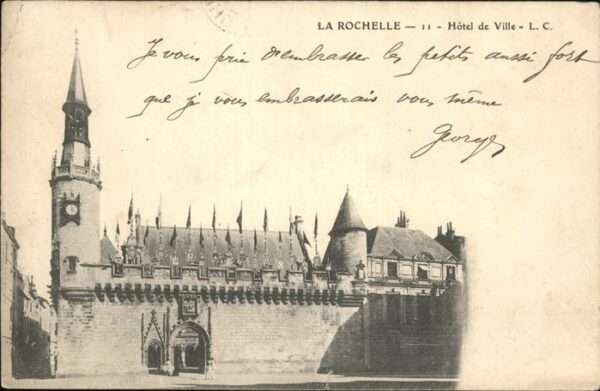 LA ROCHELLE — 11 - Hôtel de Ville - L. C.
Je vous prie d'embrasser les petits aussi fort
que je vous embrasserais vous même
Georges